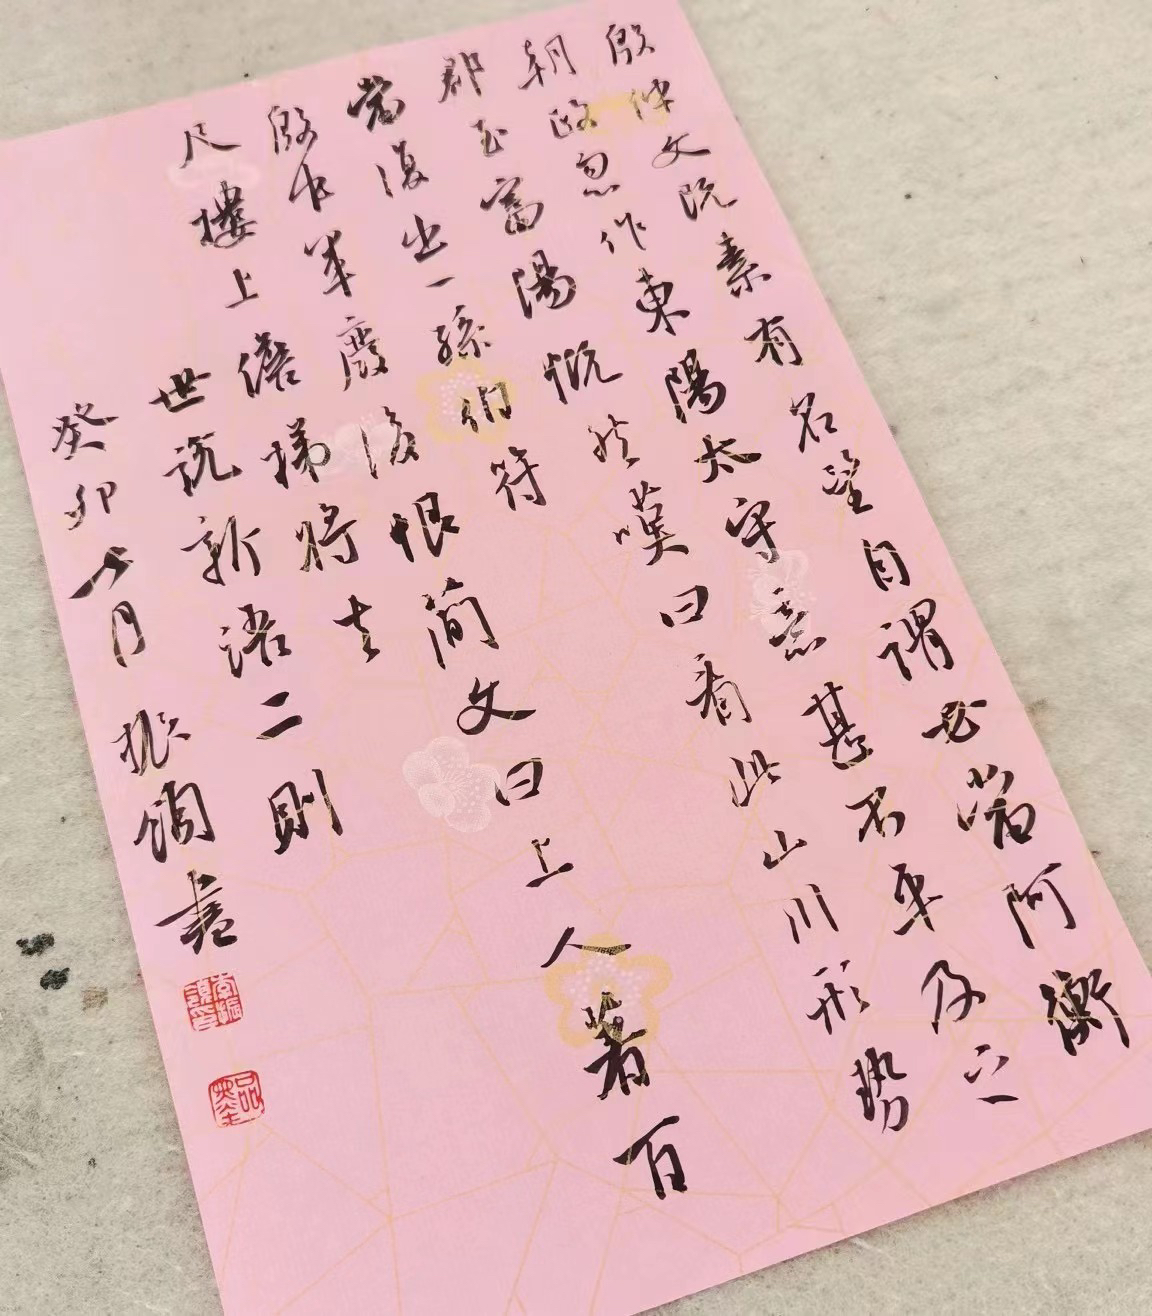 殷仲文既素有名望自謂必當阿衡
朝政忽作東陽太守意甚不平及之
郡至富陽慨然嘆曰看此山川形勢
當復出一孫伯符
殷中軍廢後恨簡文曰上人著百
尺樓上儋梯將去
世說新語二則
癸卯月振書